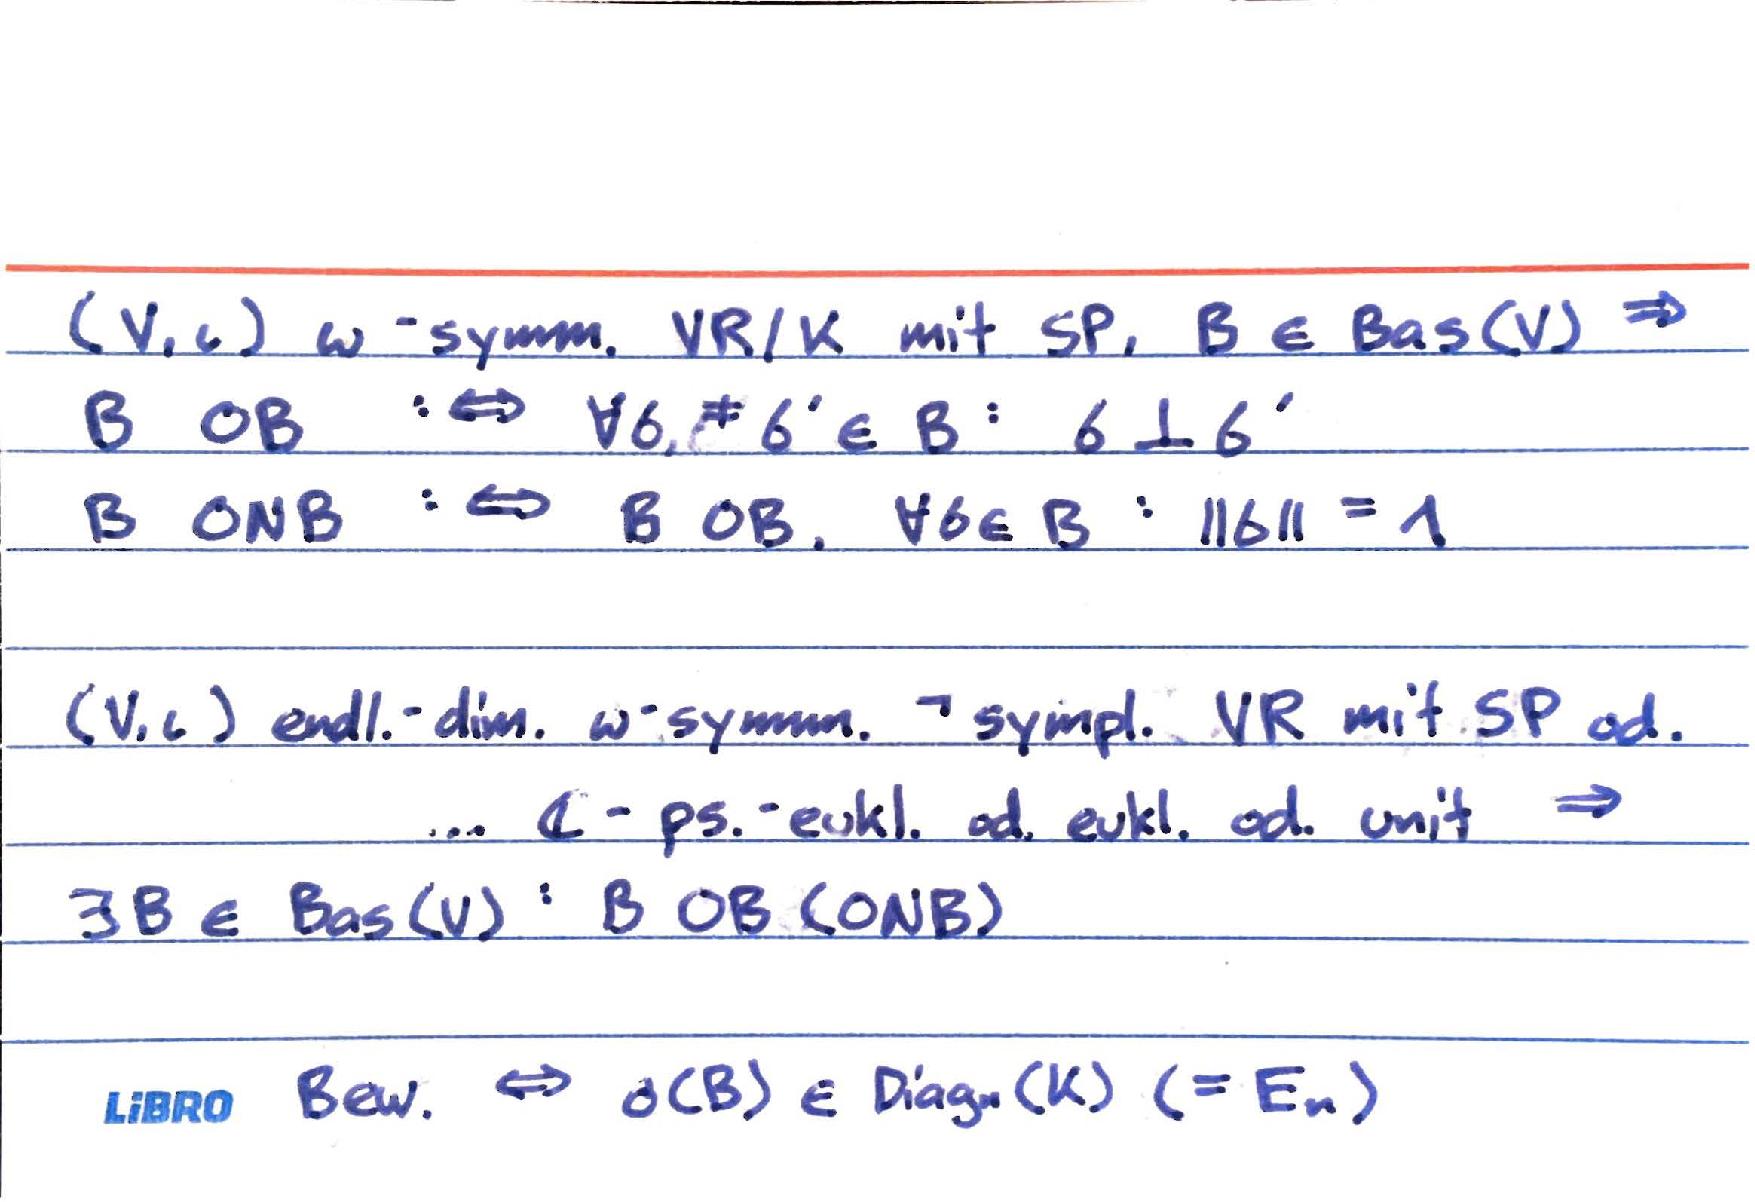 (V, ι) ω-symm. VR/K mit SP, B ∈ Bas(V) ⇒
B OB :⇔ ∀b, ≠ b' ∈ B : b ⊥ b'
B ONB :⇔ B OB, ∀b ∈ B : ||b|| = 1
(V, ι) endl.-dim. ω-symm. ¬ sympl. VR mit SP od.
... ℂ - ps.-eukl. od. eukl. od. unit ⇒
∃B ∈ Bas(V) : B OB (ONB)
LiBRO Bew. ⇔ σ(B) ∈ Diagₙ(K) (= Eₙ)